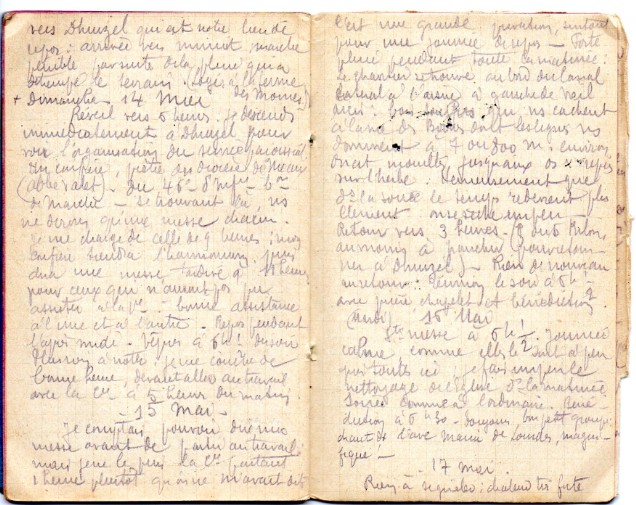 vers Dhuizel qui est notre lieu de
repos : arrivée vers minuit, marche
pénible par suite de la pluie qui a
détrempé le terrain. Logés à la ferme
+ Dimanche 14 Mai des Moines
Réveil vers 6 heures. Je descends
immédiatement à Dhuizel pour
voir l'organisation du service
Un confrère, prêtre du diocèse de
(abbé) du 46e d'Infie
de Marche - se trouvant là, ns
ne dirons qu'une messe chacun.
Je me charge de celle de 9 heures ; mon
confrère tiendra l'harmonium, puis
dira une messe tardive à 11 heures
pour ceux qui n'auront pu
assister à la 1re - bonne assistance
à l'une et à l'autre. Repos pendant
l'après midi. Vêpres à 6h 1/2 du soir
Réunion à notre. Je me couche de
bonne heure, devant aller au travail
avec la Cie à 5 heures du matin
- 15 Mai -
Je comptais pouvoir dire une
messe avant de partir au travail
mais je ne le puis la Cie partant
1 heure plutôt qu'on ne m'avait dit
C'est une grande privation, surtout
pour une journée de repos - Forte
pluie pendant toute la matinée.
Le chantier se trouve au bord du canal
latéral à l'Aisne à gauche de
qui ns cachent
à la vue des Boches dont les lignes ns
dominent à 7 ou 800 m. environ
On est mouillé jusqu'aux os
sur l'herbe. Heureusement que
la route le temps redevient plus
clément. On se sèche un peu
Retour vers 3 heures -
au moins à pour retour-
ner à Dhuizel) - Rien de nouveau
Réunion le soir à 6h -
avec prière chapelet et bénédiction
(Mardi) 16 Mai
Ste messe à 6h 1/2. Journée
calme comme elles le sont à peu
près toutes ici je fais un peu le
nettoyage de l'église ds la matinée
Soirée comme à l'ordinaire. Béné-
diction à 6h30 - toujours bon petit groupe
chant de l'Ave Maria de Lourdes, magni-
fique -
17 mai.
Rien à signaler ; chaleur très forte